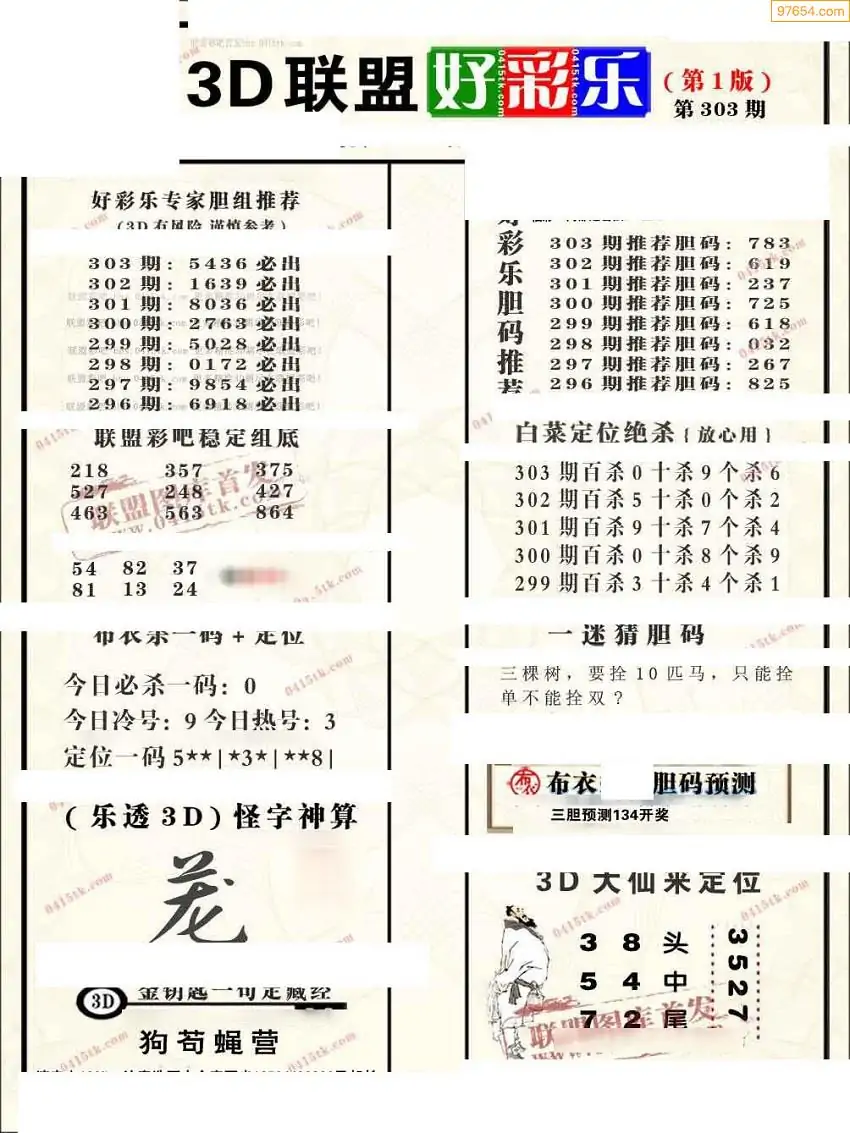 97654.com
3D联盟好彩乐
(第1版)
第303期
好彩乐专家胆组推荐
(3D有风险 谨慎参考)
303期：5436必出
302期：1639必出
301期：8036必出
300期：2763必出
299期：5028必出
298期：0172必出
297期：9854必出
296期：6918必出
联盟彩吧稳定组底
218 357 375
527 248 427
463 563 864
54 82 37
81 13 24
布衣杀一码+定位
今日必杀一码：0
今日冷号：9今日热号：3
定位一码5**|*3*|**8|
(乐透3D)怪字神算
茏
3D
金钥匙一句定藏经
狗苟蝇营
好彩乐胆码推荐
303期推荐胆码：783
302期推荐胆码：619
301期推荐胆码：237
300期推荐胆码：725
299期推荐胆码：618
298期推荐胆码：032
297期推荐胆码：267
296期推荐胆码：825
白菜定位绝杀{放心用}
303期百杀0十杀9个杀6
302期百杀5十杀0个杀2
301期百杀9十杀7个杀4
300期百杀0十杀8个杀9
299期百杀3十杀4个杀1
一迷猜胆码
三棵树，要拴10匹马，只能拴
单不能拴双？
布衣
胆码预测
三胆预测134开奖
3D大仙来定位
3 8 头
5 4 中
7 2 尾
3527
联盟图库首发
www.0415tk.com
0415tk.com